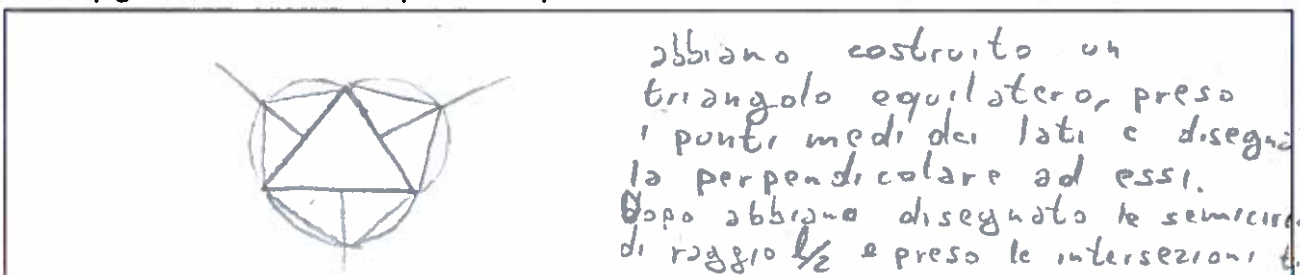 abbiamo costruito un
triangolo equilatero, preso
i punti medi dei lati e disegna
la perpendicolare ad essi.
Dopo abbiamo disegnato le semicirc
di raggio l/2 e preso le intersezioni t